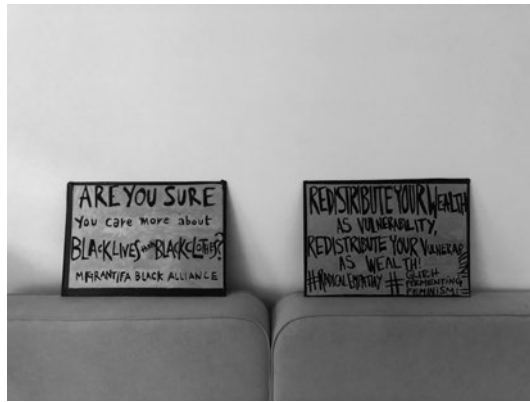 ARE YOU SURE
You care more about
BLACK LIVES than BLACK CLOTHES?
MIGRANTIFA BLACK ALLIANCE
REDISTRIBUTE YOUR WEALTH
AS VULNERABILITY,
REDISTRIBUTE YOUR
AS WEALTH!
#RADICAL EMPATHY #GLITCH
FERMENTING
FEMINISM